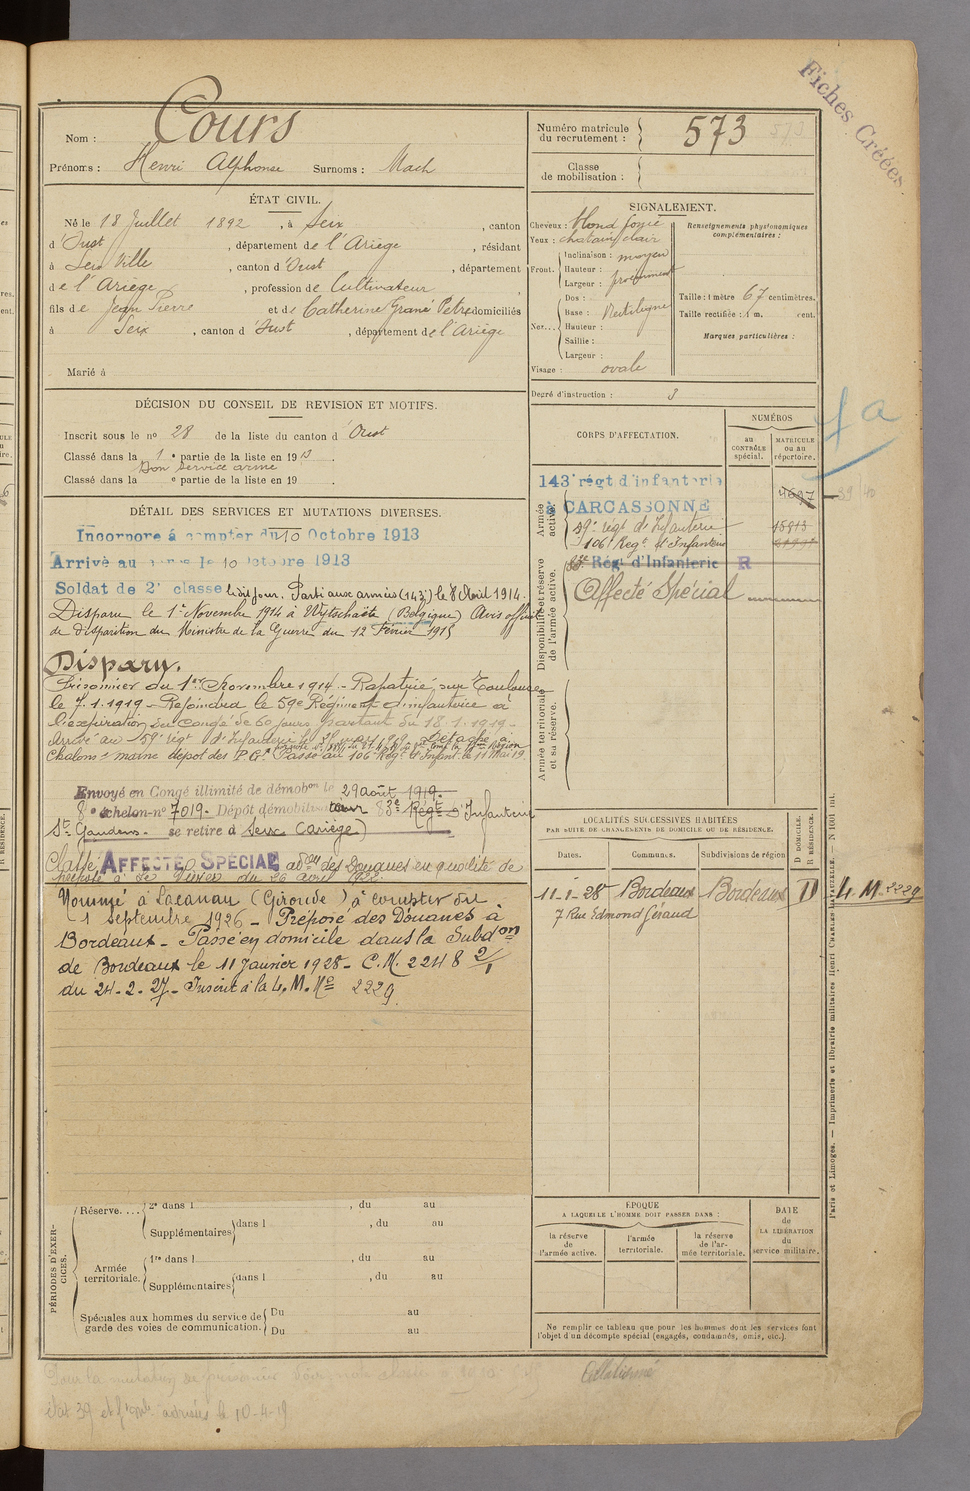 Fiches Créées.
Nom : Cours
Prénoms : Henri Alphonse Surnoms : Mach
Numéro matricule du recrutement : 573
Classe de mobilisation :
ÉTAT CIVIL.
Né le 18 Juillet 1892, à Seix, canton
d'Oust, département de l'Ariège, résidant
à Seix Ville, canton d'Oust, département
de l'Ariège, profession de Cultivateur
fils de Jean Pierre et de Catherine Grané Petre domiciliés
à Seix, canton d'Oust, département de l'Ariège
Marié à
SIGNALEMENT.
Cheveux : blond foncé
Yeux : chatain clair
Front. Inclinaison : moyen
Hauteur :
Largeur : proéminent
Nez... Dos :
Base : Rectiligne
Hauteur :
Saillie :
Largeur :
Visage : ovale
Renseignements physionomiques complémentaires :
Taille : 1 mètre 67 centimètres.
Taille rectifiée : 1 m. cent.
Marques particulières :
Degré d'instruction : 3
DÉCISION DU CONSEIL DE REVISION ET MOTIFS.
Inscrit sous le no 28 de la liste du canton d'Oust
Classé dans la 1e partie de la liste en 1913.
Bon service armé
Classé dans la e partie de la liste en 19
DÉTAIL DES SERVICES ET MUTATIONS DIVERSES.
Incorporé à compter du 10 Octobre 1913
Arrivé au corps le 10 Octobre 1913
Soldat de 2e classe ledit jour. Parti aux armées (143) le 8 Août 1914.
Disparu le 1er Novembre 1914 à Wytschaëte (Belgique) Avis officiel
de disparition du Ministre de la Guerre du 12 Février 1915
Disparu.
Prisonnier du 1er Novembre 1914. - Rapatrié, sur Toulouse
le 7.1.1919 - Rejoindra le 59e Régiment d'infanterie à
l'expiration du congé de 60 jours partant du 18.1.1919 -
Arrivé au 59e régt d'Infanterie le
Chalons s/ marne dépot des P.G. Passé au 106e Régt d'Infant. le 11 Mai 19.
Envoyé en Congé illimité de démobon le 29 août 1919.
8e échelon - no 7019. Dépôt démobilisateur 83e Régt d'Infanterie
St Gaudens - se retire à Seix (Ariège)
Classé AFFECTÉ SPÉCIAL adon des Douanes en qualité de
du 26 avril 1922.
Nommé à Lacanau (Gironde) à compter du
1 Septembre 1926 - Préposé des Douanes à
Bordeaux - Passé en domicile dans la Subdon
de Bordeaux le 11 Janvier 1928 - C.M. 2248 2/1
du 24-2-27 - Inscrit à la L.M. No 2229
CORPS D'AFFECTATION.
NUMÉROS
au CONTRÔLE spécial.
MATRICULE ou au répertoire.
Armée active.
143e régt d'infanterie
à CARCASSONNE
59e régt d'Infanterie 15813
106e Régt d'Infanterie
Disponibilité et réserve de l'armée active.
83e Régt d'Infanterie R
Affecté Spécial
Armée territoriale et sa réserve.
LOCALITÉS SUCCESSIVES HABITÉES
PAR SUITE DE CHANGEMENTS DE DOMICILE OU DE RÉSIDENCE.
Dates. Communes. Subdivisions de région
D DOMICILE. R RÉSIDENCE.
11-1-28 Bordeaux Bordeaux D L.M. 2229
7 Rue Edmond Géraud
PÉRIODES D'EXERCICES.
Réserve.... 2e dans l , du au
Supplémentaires dans l , du au
Armée territoriale. 1re dans l , du au
Supplémentaires dans l , du au
Spéciales aux hommes du service de garde des voies de communication. Du au
Du au
ÉPOQUE
A LAQUELLE L'HOMME DOIT PASSER DANS :
la réserve de l'armée active.
l'armée territoriale.
la réserve de l'armée territoriale.
DATE de LA LIBÉRATION du service militaire.
Ne remplir ce tableau que pour les hommes dont les services font
l'objet d'un décompte spécial (engagés, condamnés, omis, etc.).
Paris et Limoges. — Imprimerie et librairie militaires Henri CHARLES-LAVAUZELLE. — N 1001 int.
Collationné